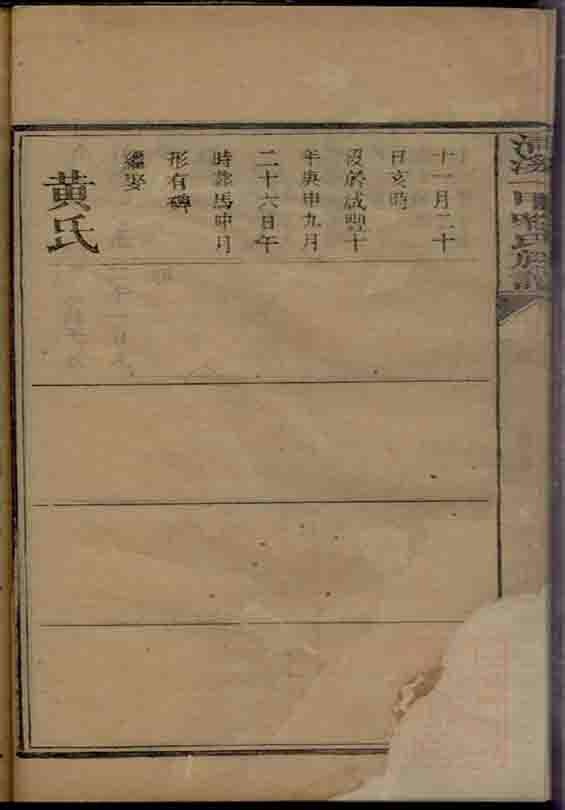 十一月二十
日亥時
沒於咸豐十
年庚申九月
二十六日午
時葬馬
形有碑
繼娶
黄氏
氏族譜